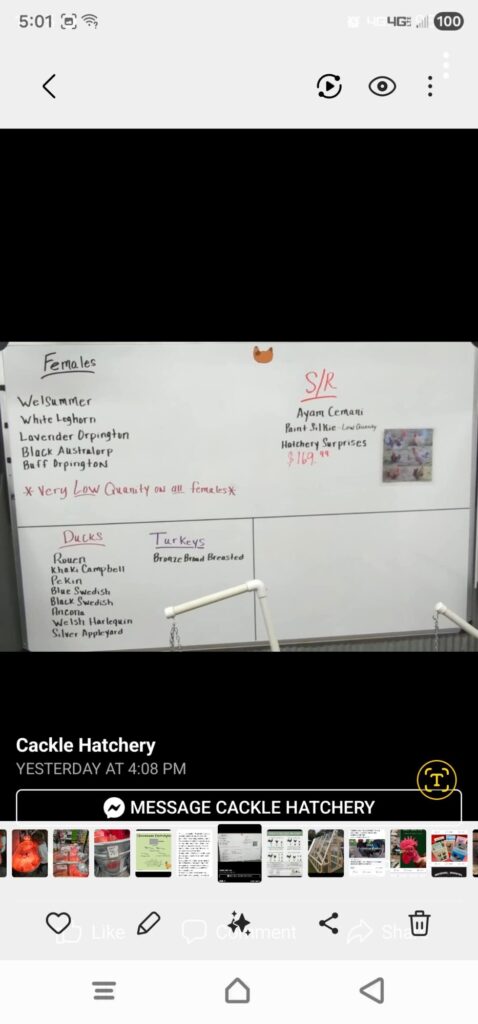 5:01
4G 4GE
100
Females
Welsummer
White Leghorn
Lavender Orpington
Black Australorp
Buff Orpington
*Very Low Quanity on all females*
S/R
Ayam Cemani
Paint Silkie - Low Quanity
Hatchery Surprises
$169.99
Ducks
Rouen
Khaki Campbell
Pekin
Blue Swedish
Black Swedish
Ancona
Welsh Harlequin
Silver Appleyard
Turkeys
Bronze Broad Breasted
Cackle Hatchery
YESTERDAY AT 4:08 PM
T
MESSAGE CACKLE HATCHERY
Like
Comment